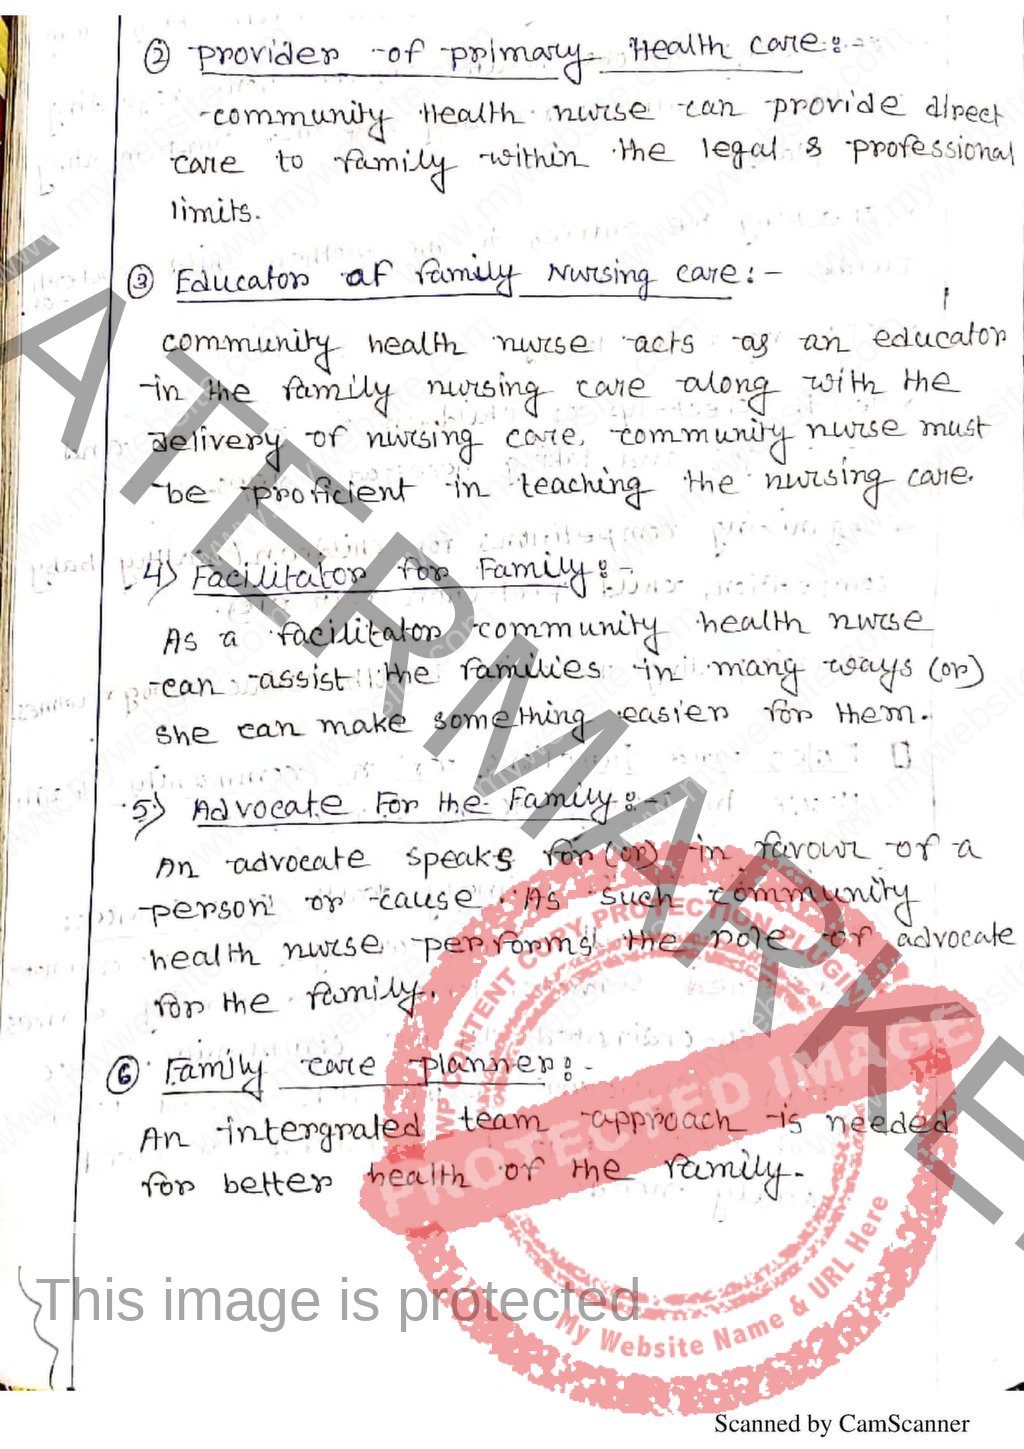 ② Provider of primary Health care:-
community Health nurse can provide direct
care to family within the legal & professional
limits.
③ Educator of family Nursing care:-
community health nurse acts as an educator
in the family nursing care along with the
delivery of nursing care, community nurse must
be proficient in teaching the nursing care.
4) Facilitator for Family:-
As a facilitator community health nurse
can assist the families in many ways (or)
she can make something easier for them.
5) Advocate For the Family:-
An advocate speaks for (or) in favour of a
person or cause. As such community
health nurse performs the role of advocate
for the family.
⑥ Family care planner:-
An intergrated team approach is needed
for better health of the family.
WATERMARKED
WP CONTENT COPY PROTECTION PLUGIN
PROTECTED IMAGE
My Website Name & URL Here
This image is protected
www.mywebsite.com
Scanned by CamScanner